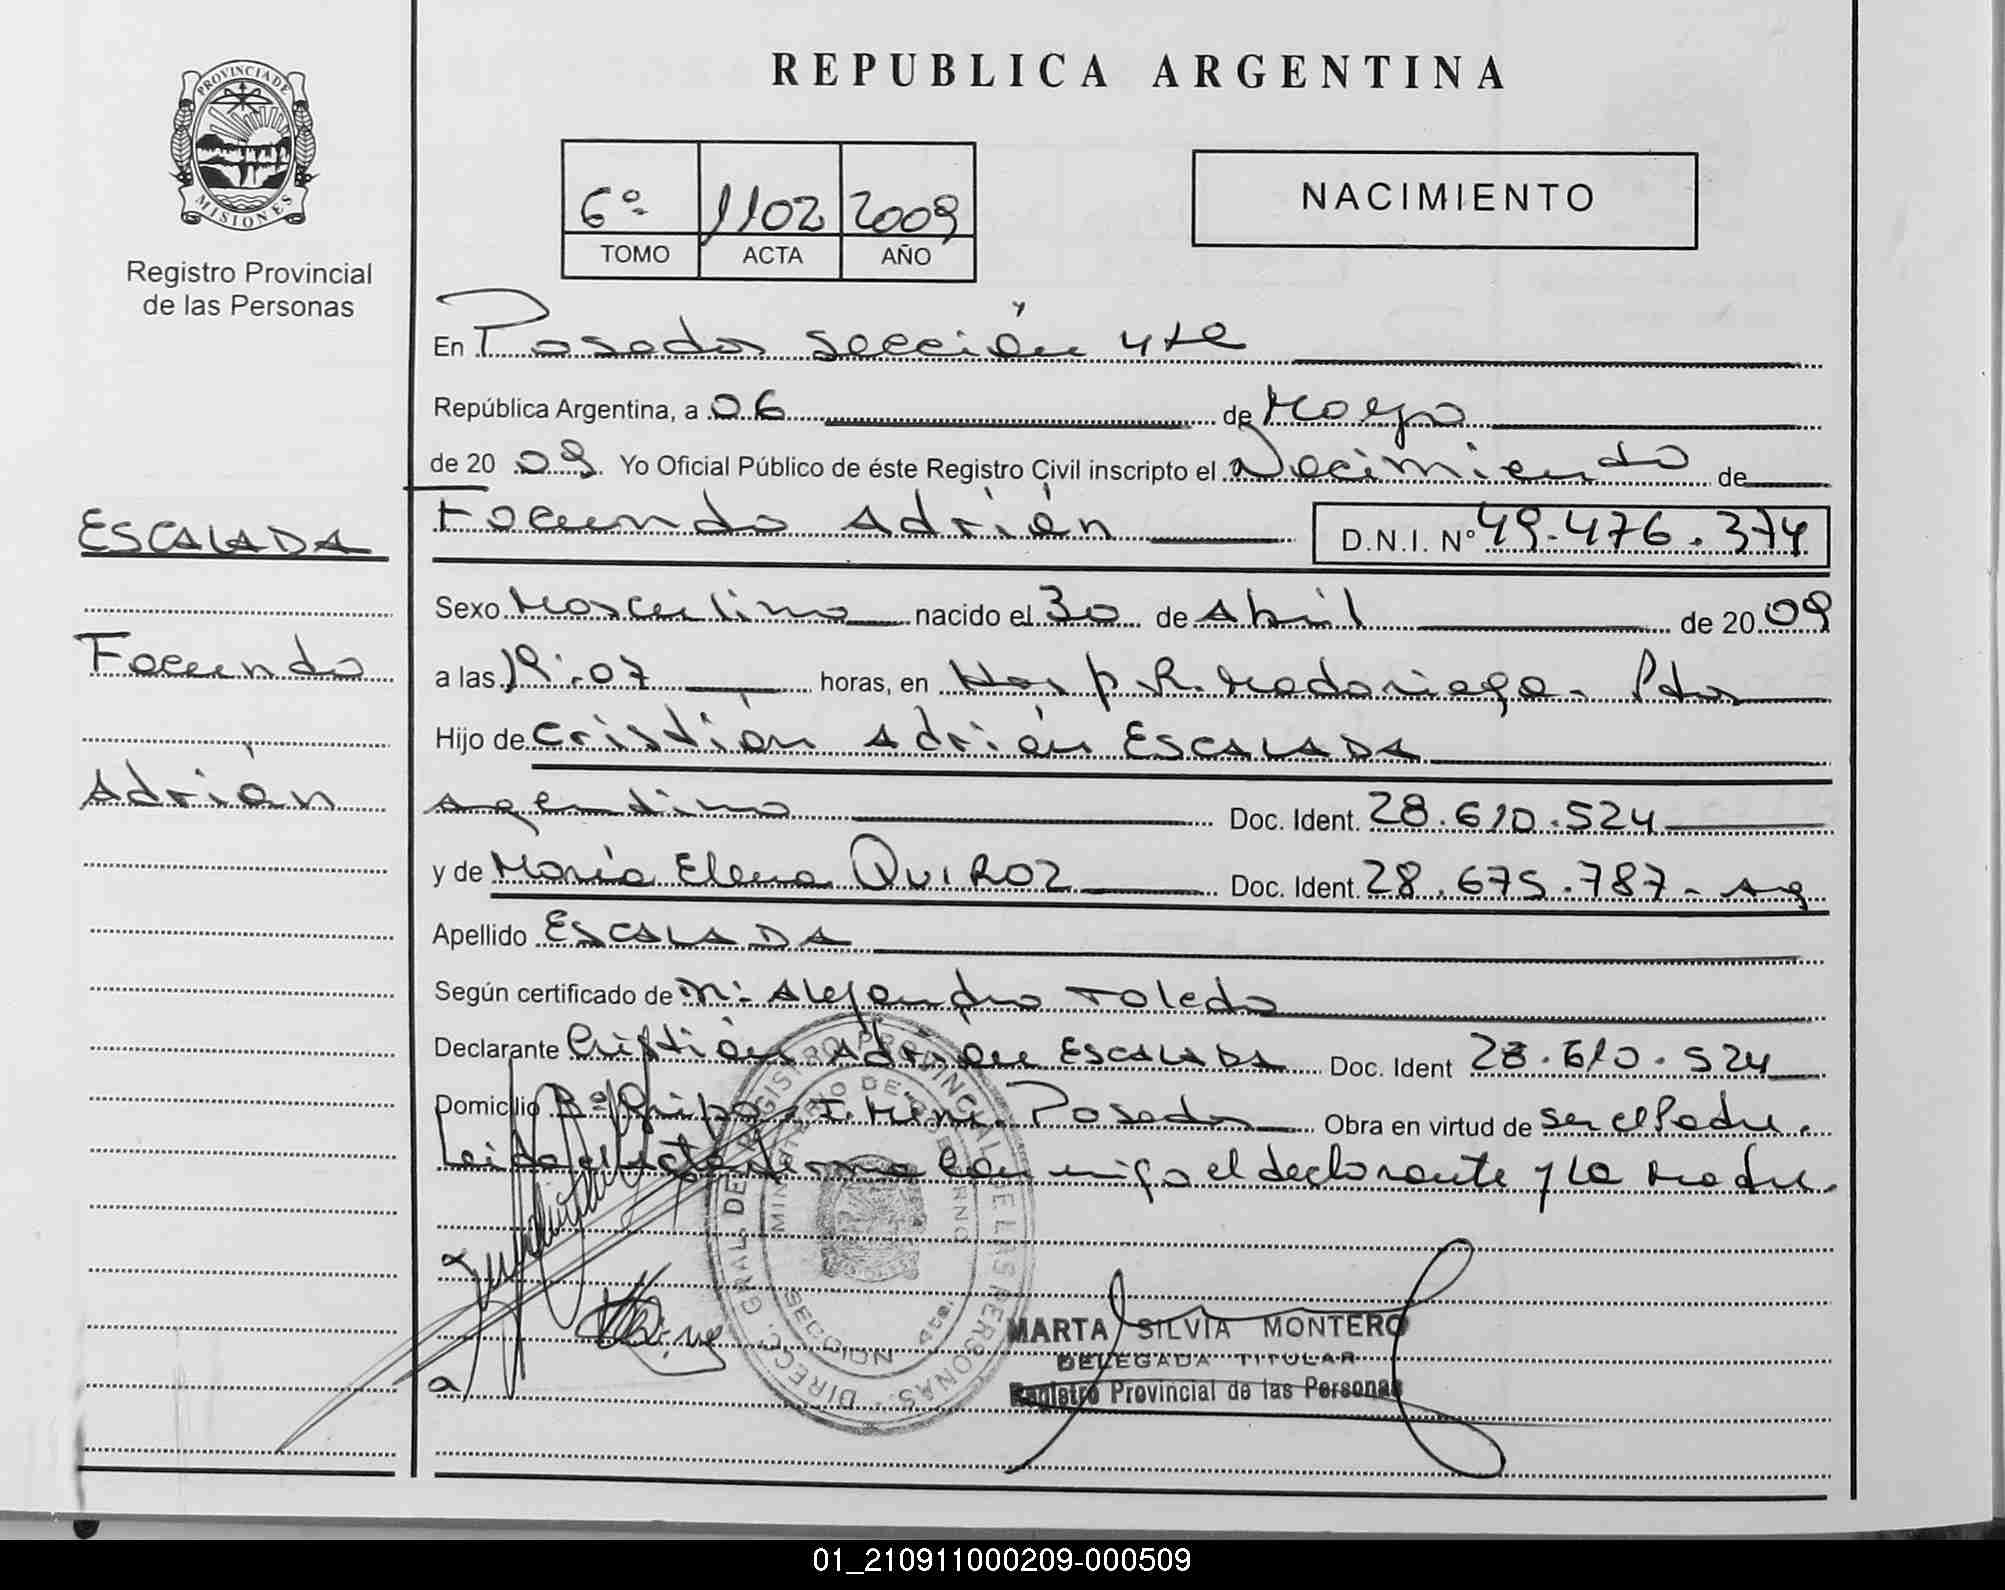 PROVINCIA DE
MISIONES
Registro Provincial
de las Personas
ESCALADA
Facundo
Adrián
REPUBLICA ARGENTINA
6º 1102 2009
TOMO ACTA AÑO
NACIMIENTO
En Posadas sección 4ta
República Argentina, a 06 de Mayo
de 20 09. Yo Oficial Público de éste Registro Civil inscripto el Nacimiento de
Facundo Adrián D.N.I. Nº 49.476.374
Sexo Masculino nacido el 30 de Abril de 20 09
a las 19:07 horas, en Hosp R. Madariaga. Pdas
Hijo de Cristián Adrián ESCALADA
Argentino Doc. Ident. 28.610.524
y de María Elena QUIROZ Doc. Ident. 28.675.787- Arg
Apellido ESCALADA
Según certificado de Alejandro Toledo
Declarante Cristián Adrián ESCALADA Doc. Ident 28.610.524
Domicilio Bº Posadas Obra en virtud de ser el Padre.
Leida el acta firma conmigo el declarante y la madre.
DIRECC. GRAL. DE REGISTRO PROVINCIAL DE LAS PERSONAS
MINISTERIO DE GOBIERNO
SECCION 4ta.
MARTA SILVIA MONTERO
DELEGADA TITULAR
Registro Provincial de las Personas
01_210911000209-000509